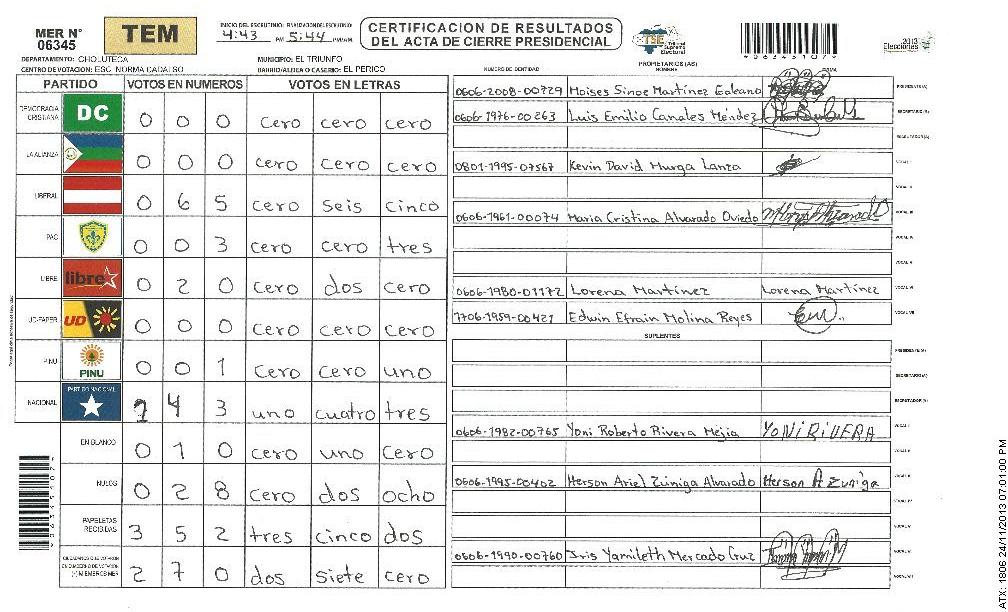 MER N° 06345
TEM
INICIO DEL ESCRUTINIO: FINALIZACION DEL ESCRUTINIO
4:43 PM 5:44 PM/AM
CERTIFICACION DE RESULTADOS
DEL ACTA DE CIERRE PRESIDENCIAL
TSE
Tribunal Supremo Electoral
9063451079
2013
Elecciones
DEPARTAMENTO: CHOLUTECA
MUNICIPIO: EL TRIUNFO
CENTRO DE VOTACION: ESC. NORMA CADALSO
BARRIO/ALDEA O CASERIO: EL PERICO
NUMERO DE IDENTIDAD
PROPIETARIOS (AS)
NOMBRE
FIRMA
PARTIDO VOTOS EN NUMEROS VOTOS EN LETRAS
DEMOCRACIA CRISTIANA DC 0 0 0 cero cero cero
LA ALIANZA 0 0 0 cero cero cero
LIBERAL 0 6 5 cero seis cinco
PAC 0 0 3 cero cero tres
LIBRE libre 0 2 0 cero dos cero
UD-FAPER UD 0 0 0 cero cero cero
PINU PINU 0 0 1 cero cero uno
NACIONAL PARTIDO NACIONAL 1 4 3 uno cuatro tres
EN BLANCO 0 1 0 cero uno cero
NULOS 0 2 8 cero dos ocho
PAPELETAS RECIBIDAS 3 5 2 tres cinco dos
CIUDADANOS QUE VOTARON EN CUADERNO DE VOTACION (+) MIEMBROS MER 2 7 0 dos siete cero
0606-2008-00729 Moises Sinoe Martinez Galeano PRESIDENTE(A)
0606-1976-00263 Luis Emilio Canales Méndez SECRETARIO(A)
ESCRUTADOR(A)
0801-1995-07567 Kevin David Murga Lanza VOCAL I
VOCAL II
0606-1961-00074 Maria Cristina Alvarado Oviedo VOCAL III
VOCAL IV
VOCAL V
0606-1980-01172 Lorena Martínez Lorena Martínez VOCAL VI
1706-1959-00421 Edwin Efrain Molina Reyes VOCAL VII
SUPLENTES
PRESIDENTE(A)
SECRETARIO(A)
ESCRUTADOR(A)
0606-1982-00765 Yoni Roberto Rivera Mejia YONI RIVERA VOCAL I
VOCAL II
0606-1995-00402 Herson Ariel Zuniga Alvarado Herson A Zuniga VOCAL III
VOCAL IV
VOCAL V
0606-1990-00760 Iris Yamileth Mercado Cruz VOCAL VI
VOCAL VII
9063451079
ATX: 1806 24/11/2013 07:01:00 PM